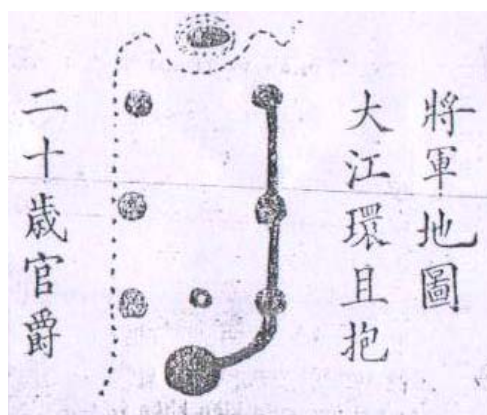 將軍地圖
大江環且抱
二十歲官爵